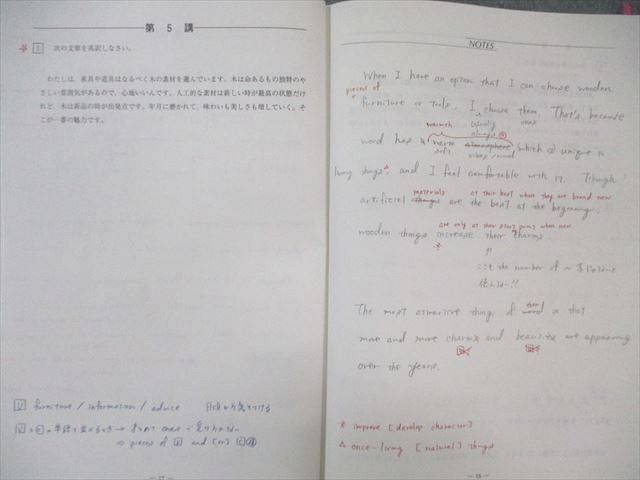 第 5 講
1 次の文章を英訳しなさい。
わたしは、家具や道具はなるべく木の素材を選んでいます。木は命あるもの独特のや
さしい雰囲気があるので、心地いいんです。人工的な素材は新しい時が最高の状態だけ
れど、木は新品の時が出発点です。年月に磨かれて、味わいも美しさも増していく。そ
こが一番の魅力です。
furniture / information / advice
pieces of and (or)
17
NOTES
When I have an option that I can choose wooden
pieces of
furniture or tools, I choose them. That's because
usually ones
warmth always
wood has warm atmosphere, which is unique to
soft vibes / mood
living things, and I feel comfortable with it. Though
materials at their best when they are brand new
artificial things are the best at the beginning,
are only at their starting points when new
wooden things increase their charms.
the number of
The most attractive thing of wood is that
more and more charms and beauties are appearing
over the years.
※ improve [develop character]
△ once-living [natural] things
18